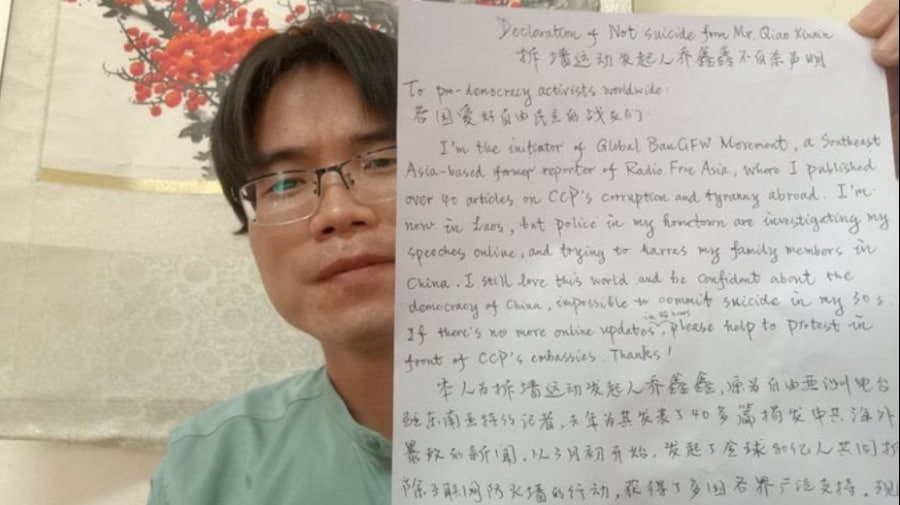 Declaration of Not suicide from Mr. Qiao Xinxin
拆墙运动发起人乔鑫鑫不自杀声明
To pro-democracy activists worldwide:
各国爱好自由民主的战友们:
I'm the initiator of Global BanGFW Movement, a Southeast
Asia-based former reporter of Radio Free Asia, where I published
over 40 articles on CCP's corruption and tyranny abroad. I'm
now in Laos, but police in my hometown are investigating my
speeches online, and trying to harres my family members in
China. I still love this world and be confident about the
democracy of China, impossible to commit suicide in my 30s.
If there's no more online updates, please help to protest in
front of CCP's embassies. Thanks!
本人为拆墙运动发起人乔鑫鑫,原为自由亚洲电台
驻东南亚特约记者,去年为其发表了40多篇揭发中共海外
暴政的新闻。从3月初开始,发起了全球80亿人共同拆
除互联网防火墙的行动,获得了多国各界广泛支持。现